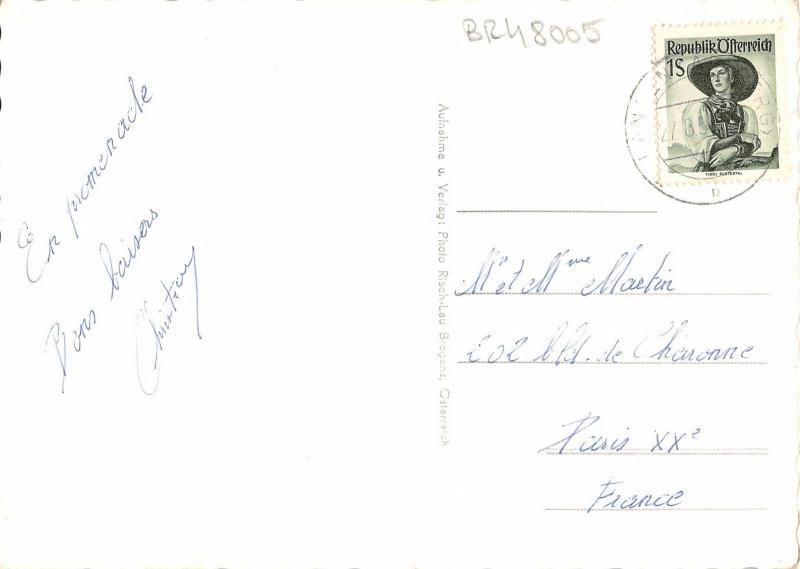 BR48005
Republik Österreich
1S
TIROL PUSTERTAL
27.8.5
D
En promenade
Bons baisers
Christian
Aufnahme u. Verlag: Photo Risch-Lau Bregenz, Österreich
Mr et Mme Martin
202 bld. de Charonne
Paris XXe
France